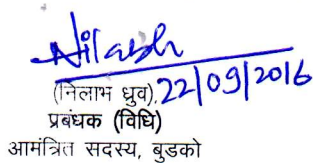 Nilabh
(निलाभ ध्रुव) 22/09/2016
प्रबंधक (विधि)
आमंत्रित सदस्य, बुडको